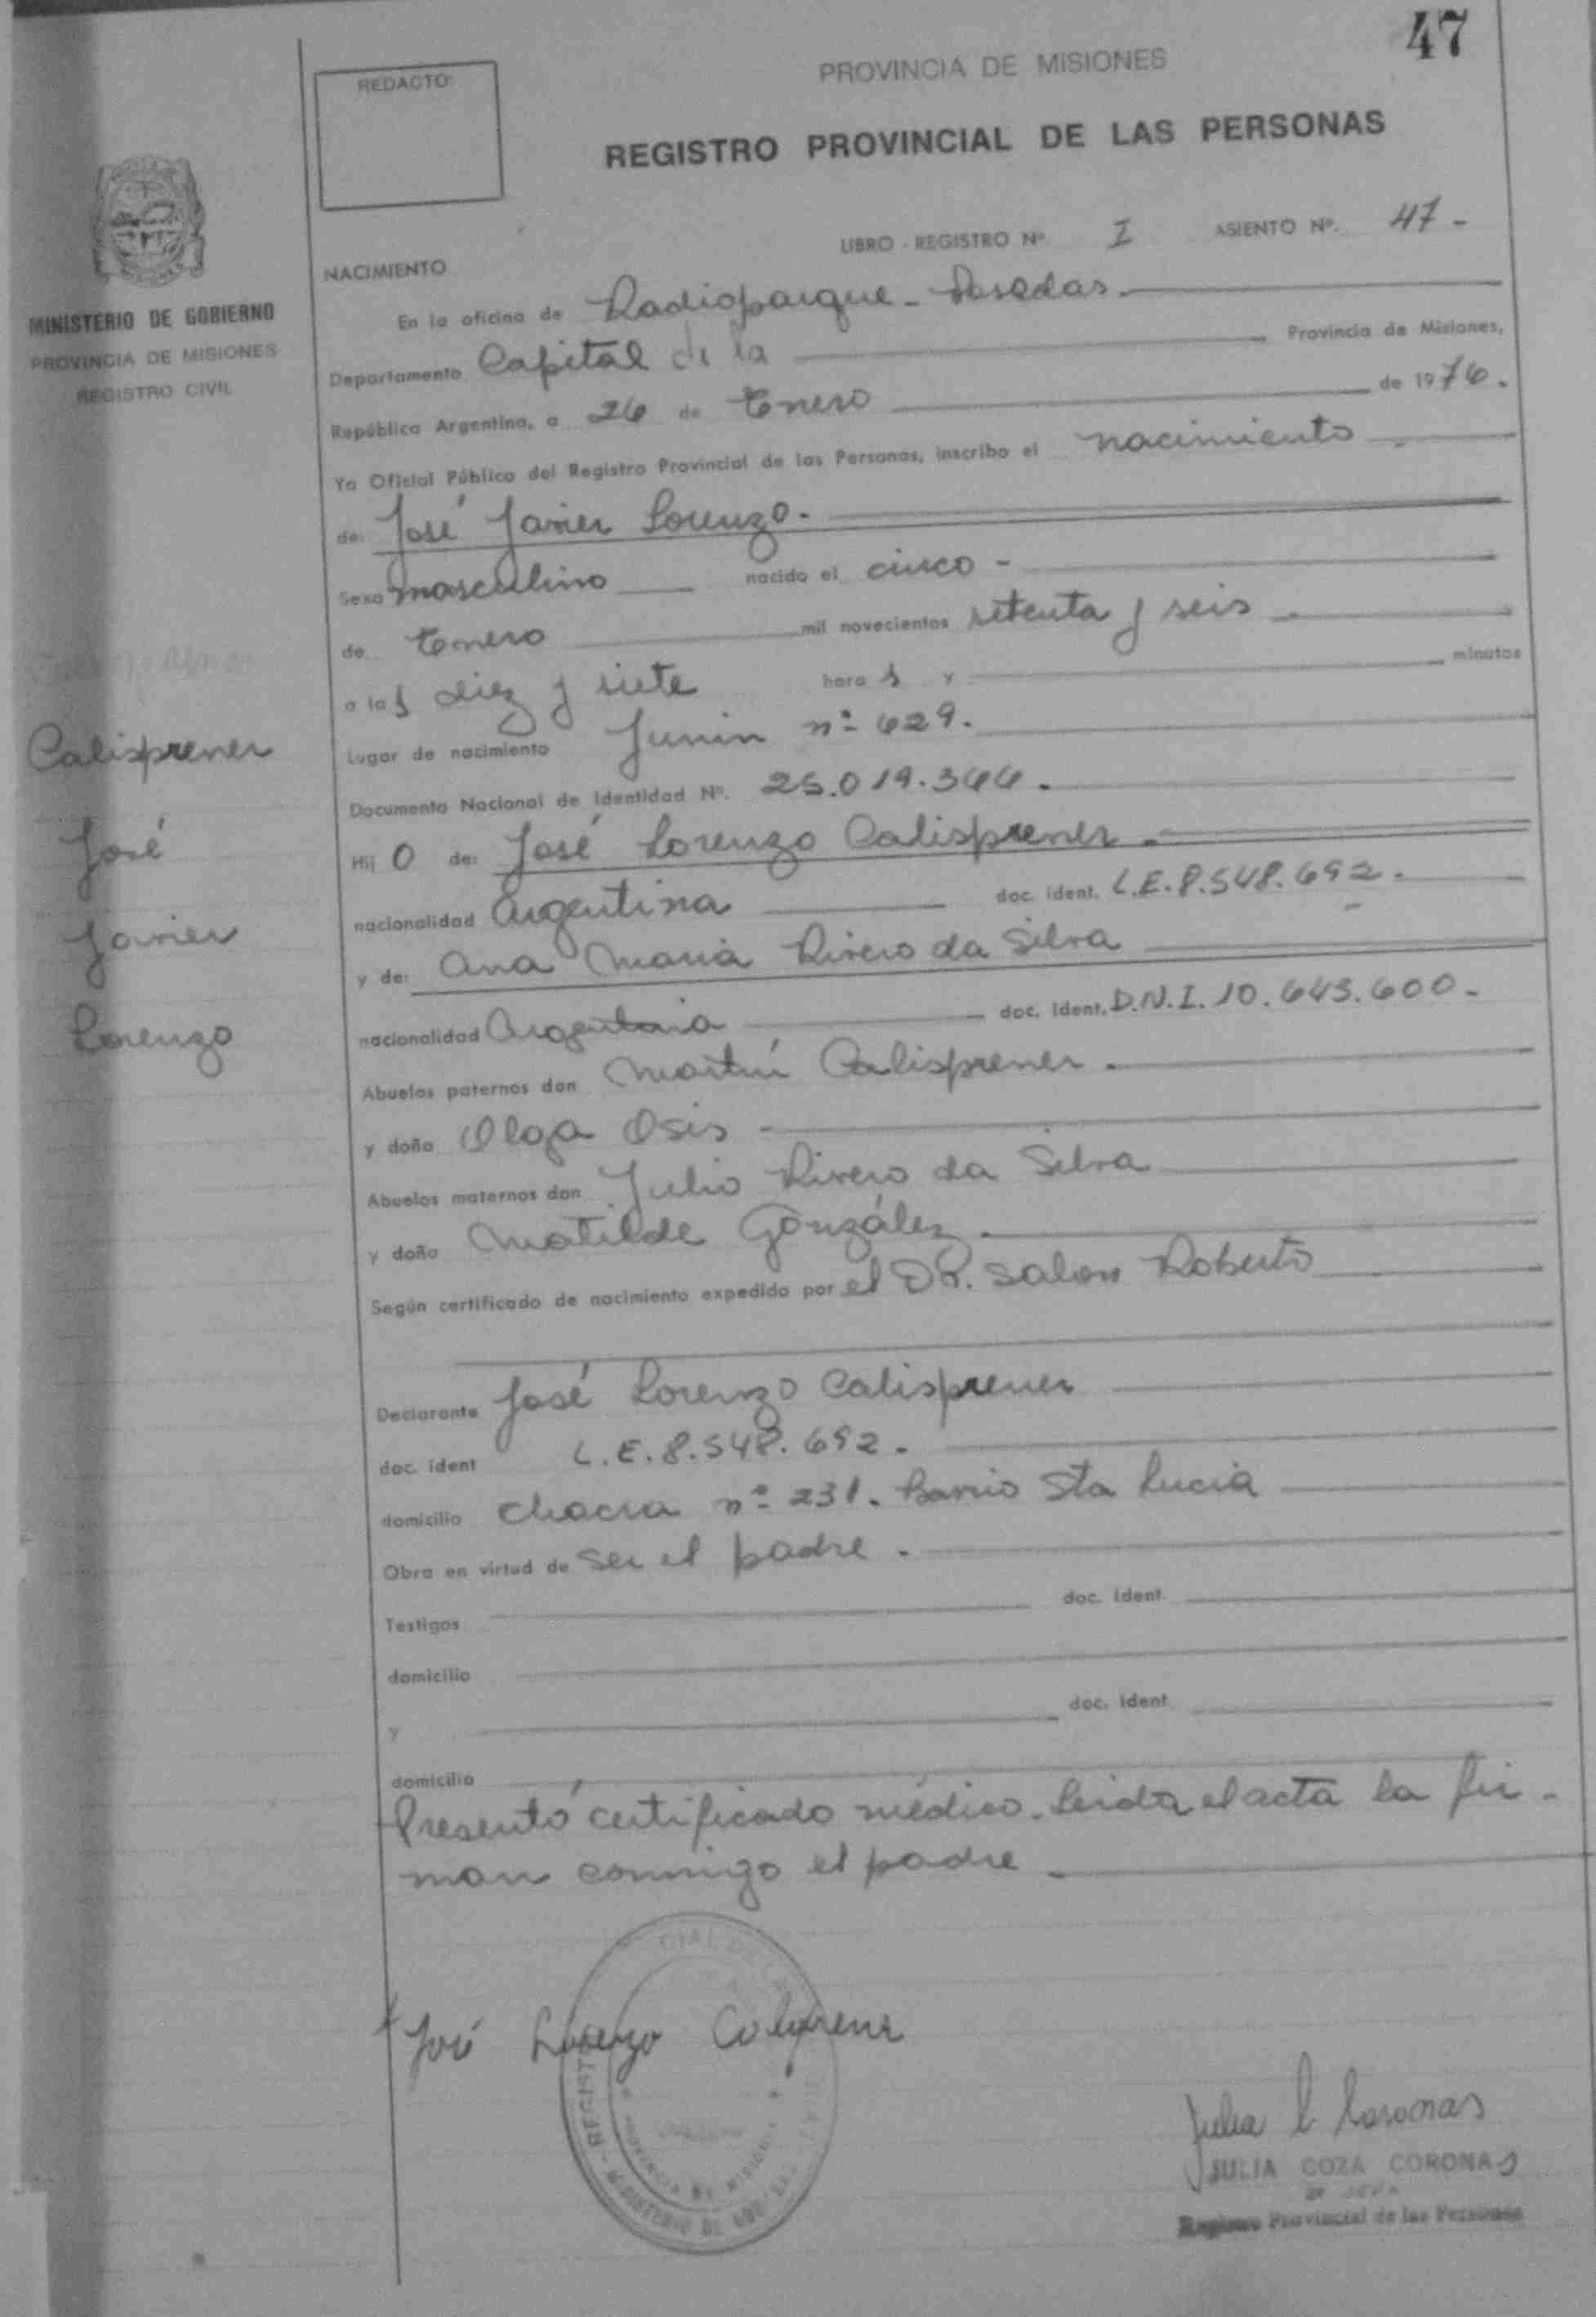 47
REDACTO:
PROVINCIA DE MISIONES
REGISTRO PROVINCIAL DE LAS PERSONAS
LIBRO - REGISTRO Nº. I ASIENTO Nº. 47 -
NACIMIENTO
MINISTERIO DE GOBIERNO
PROVINCIA DE MISIONES
REGISTRO CIVIL
En la oficina de Radioparque - Posadas.
Departamento Capital de la Provincia de Misiones,
República Argentina, a 26 de Enero de 1976.
Yo Oficial Público del Registro Provincial de las Personas, inscribo el nacimiento
de: José Javier Lorenzo.-
Sexo masculino nacido el cinco -
de Enero mil novecientos setenta y seis
a las diez y siete hora s y minutos
Lugar de nacimiento Junin nº 629.
Documento Nacional de Identidad Nº. 25.019.
Hij o de: José Lorenzo Calisprener.
nacionalidad Argentina doc. ident. L.E. 8.548.692.
y de: Ana Maria Rivero da Silva
nacionalidad Argentina doc. ident. D.N.I. 10.643.600.
Abuelos paternos don Martín Calisprener.
y doña Olga Osis -
Abuelos maternos don Julio Rivero da Silva
y doña Matilde González.
Según certificado de nacimiento expedido por el DR. Salom Roberto
Declarante José Lorenzo Calisprener
doc. ident L.E. 8.548.692.
domicilio Chacra nº 231. Barrio Sta Lucia
Obra en virtud de ser el padre.
Testigos doc. ident.
domicilio
y doc. ident
domicilio
Presentó certificado médico. Leida el acta la fir-
man conmigo el padre
Calisprener
José
Javier
Lorenzo
José Lorenzo Calisprener
JULIA COZA CORONAS
Registro Provincial de las Personas